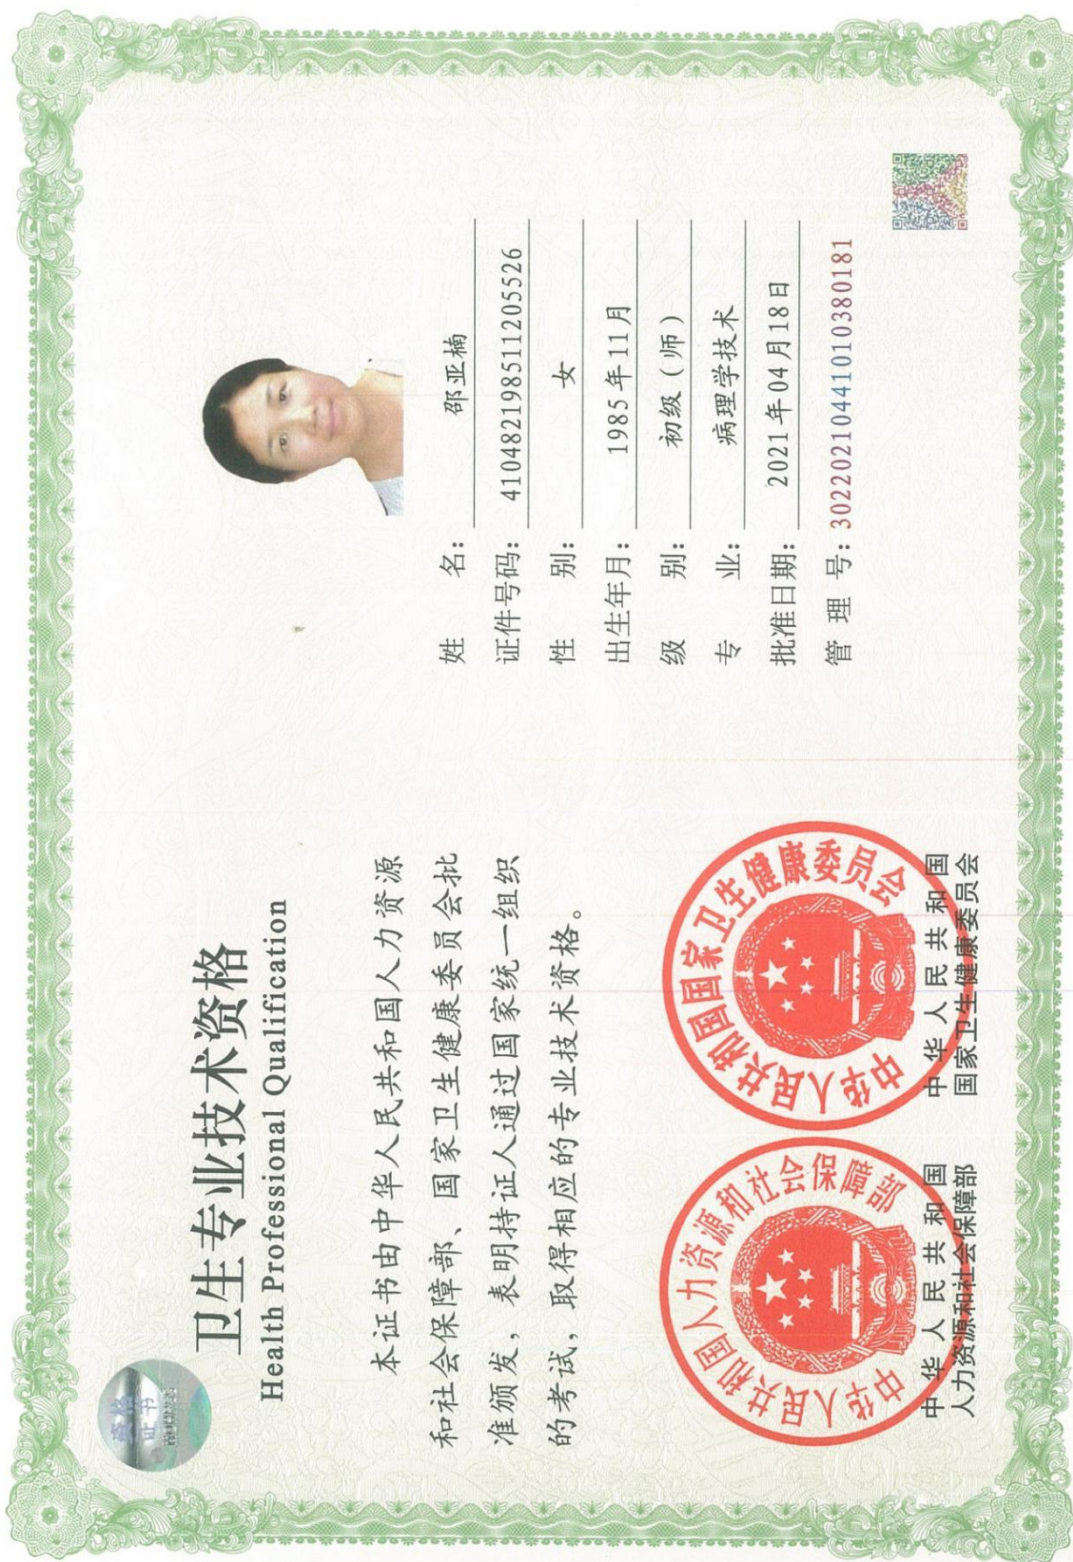 卫生专业技术资格
Health Professional Qualification
本证书由中华人民共和国人力资源
和社会保障部、国家卫生健康委员会批
准颁发，表明持证人通过国家统一组织
的考试，取得相应的专业技术资格。
中华人民共和国人力资源和社会保障部
中华人民共和国国家卫生健康委员会
中华人民共和国
人力资源和社会保障部
中华人民共和国
国家卫生健康委员会
姓名：邵亚楠
证件号码：410482198511205526
性别：女
出生年月：1985年11月
级别：初级（师）
专业：病理学技术
批准日期：2021年04月18日
管理号：30220210441010380181